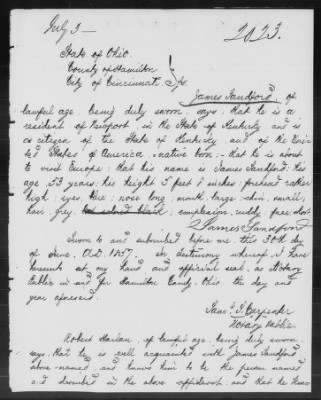 July 3 —
2023.
State of Ohio
County of Hamilton
City of Cincinnati
James Sandford, of
lawful age, being duly sworn, says: that he is a
resident of Newport, in the State of Kentucky, and is
a citizen of the State of Kentucky and of the Uni-
ted States of America, native born:- that he is about
to visit Europe: that his name is James Sandford: his
age 53 years: his height 5 feet inches: forehead rather
high: eyes, blue: nose, long: mouth, large: chin, small,
hair, grey, complexion, ruddy, face, short.
James Sandford
Sworn to and subscribed before me, this 30th day
of June, A.D. 1857. In testimony whereof I have
hereunto set my hand and official seal, as Notary
Public in and for Hamilton County, Ohio, the day and
year aforesaid.
Saml. S. Carpenter
Notary Public.
Robert Harlan, of lawful age, being duly sworn,
says that he is well acquainted with James Sandford,
above named, and knows him to be the person named
and described in the above affidavit: and that he knows